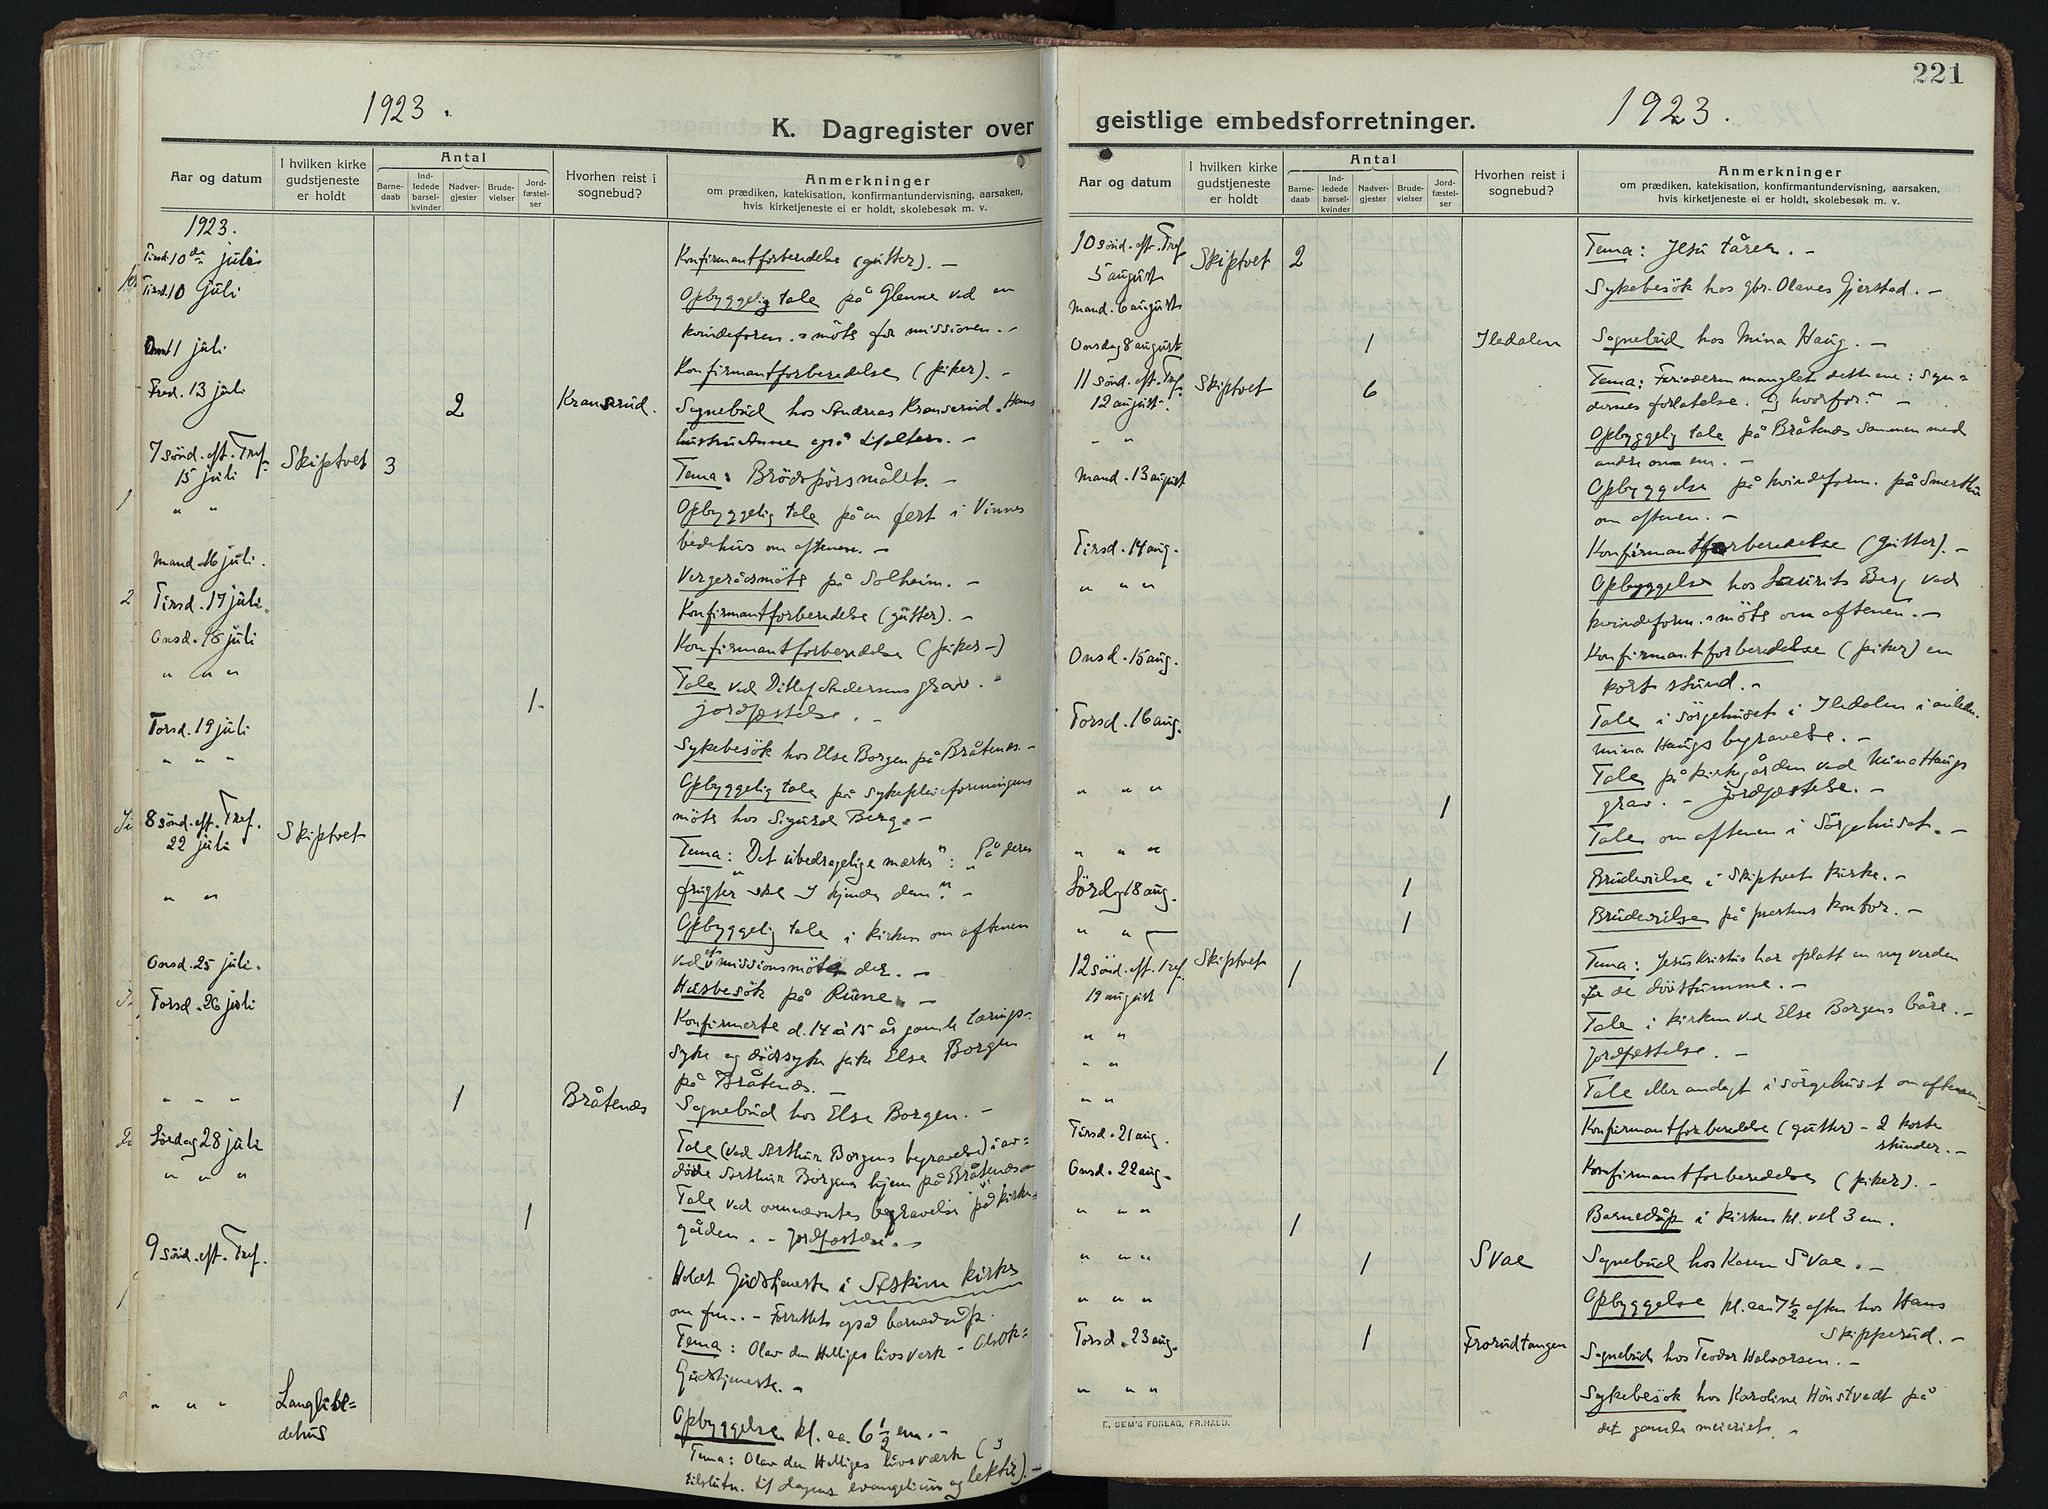 1923.
K. Dagregister over
Aar og datum
I hvilken kirke gudstjeneste er holdt
Antal
Barnedaab
Indledede barselkvinder
Nadvergjester
Brudevielser
Jordfæstelser
Hvorhen reist i sognebud?
Anmerkninger
om prædiken, katekisation, konfirmantundervisning, aarsaken,
hvis kirketjeneste ei er holdt, skolebesøk m. v.
1923.
Tirsd. 10de juli
Konfirmantforberedelse (gutter). —
Tirsd. 10 juli
Opbyggelig tale på Glenne ved en
kvindeforen.s möte for missionen. —
11 juli
Konfirmantforberedelse (piker). —
Fred. 13 juli 2 Kranserud.
Sognebud hos Andreas Kranserud. Hans
hustru Anne også
7 sönd. eft. Tref. Skiptvet 3
15 juli
Tema: Brödspörsmålet. —
" "
Opbyggelig tale på en fest i Vinnes
bedehus om aftenen. —
Mand. 16 juli.
Vergerådsmöte på Solheim. —
Tirsd. 17 juli.
Konfirmantforberedelse (gutter). —
Onsd. 18 juli
Konfirmantforberedelse (piker —)
" " " 1.
Tale ved Ditlef Andersens grav.
jordfestelse. —
Torsd. 19 juli
Sykebesök hos Else Borgen på Bråtenes. —
" " "
Opbyggelig tale på sykepleieforeningens
möte hos Sigurd Berg. —
8 sönd. eft. Tref. Skiptvet
22 juli
Tema: "Det ubedragelige mærke": "På deres
frugter skal I kjende dem". —
" "
Opbyggelig tale i kirken om aftenen
ved missionsmöte der. —
Onsd. 25 juli.
Husbesök på Rune. —
Torsd. 26 juli
Konfirmerte d. 14 à 15 år gamle tærings-
syke og dödssyke pike Else Borgen
på Bråtenes. —
" " " 1 Bråtenes
Sognebud hos Else Borgen. —
Lördag 28 juli
Tale (ved Arthur Borgens begravelse) i av-
döde Arthur Borgens hjem på Bråtenes
" " " 1
Tale ved ovennævntes begravelse på kirke-
gården. — Jordfestelse. —
9 sönd. eft. Tref.
Holdt Gudstjeneste i Askim kirke
om fm. — Forrettet også barnedåp.
Tema: Olav den Helliges livsverk — Olsok-
Gudstjeneste. —
" " " Langlibe-
dehus
Opbyggelse kl. ca. 6 1/2 em. —
Tema: Olav den Helliges livsverk (
tilslutn. til dagens evangelium og lektie). —
221
geistlige embedsforretninger.
1923.
Aar og datum
I hvilken kirke gudstjeneste er holdt
Antal
Barnedaab
Indledede barselkvinder
Nadvergjester
Brudevielser
Jordfæstelser
Hvorhen reist i sognebud?
Anmerkninger
om prædiken, katekisation, konfirmantundervisning, aarsaken,
hvis kirketjeneste ei er holdt, skolebesøk m. v.
10 sönd. eft. Tref. Skiptvet 2
5 august
Tema: Jesu tårer. —
Mand. 6 august
Sykebesök hos gbr. Olaves Gjerstad. —
Onsdag 8 august 1 Iledalen
Sognebud hos Mina Haug. —
11 sönd. eft. Tref. Skiptvet 6
12 august.
Tema: Farisæeren manglet dette ene: Syn-
dernes forlatelse. Og hvorfor? —
" "
Opbyggelig tale på Bråtenes sammen med
andre om em. —
Mand. 13 august
Opbyggelse på kvindeforn. på
om aftenen. —
Tirsd. 14 aug.
Konfirmantforberedelse (gutter). —
" " "
Opbyggelse hos Laurits Berg ved
kvindeforn.s möte om aftenen. —
Onsd. 15 aug.
Konfirmantforberedelse (piker) en
kort stund. —
Torsd. 16 aug.
Tale i sörgehuset i Iledalen i anledn.
Mina Haugs begravelse. —
" " " 1
Tale på kirkegården ved Mina Haugs
grav. — Jordfestelse. —
" " "
Tale om aftenen i Sörgehuset. —
Lördag 18 aug. 1
Brudevielse i Skiptvet kirke. —
" " — 1
Brudevielse på prestens kontor. —
12 sönd. eft. Tref. Skiptvet 1
19 august
Tema: Jesus Kristus har oplatt en ny verden
for de dövstumme. —
" "
Tale i kirken ved Else Borgens båre. —
" " 1
Jordfestelse. —
" "
Tale eller andagt i sörgehuset om aftenen. —
Tirsd. 21 aug.
Konfirmantforberedelse (gutter) — 2 korte
stunder. —
Onsd. 22 aug.
Konfirmantforberedelse (piker). —
" " " 1
Barnedåp i kirken kl. vel 3 em.
" " " 1 Svae
Sognebud hos Karen Svae. —
" " "
Opbyggelse kl. ca. 7 1/2 aften hos Hans
Skipperud. —
Torsd. 23 aug. 1 Frorudtangen
Sognebud hos Teodor Halvorsen. —
" " "
Sykebesök hos Karoline Hönstvedt på
det gamle meieriet. —
E. SEM'S FORLAG, FR.HALD.